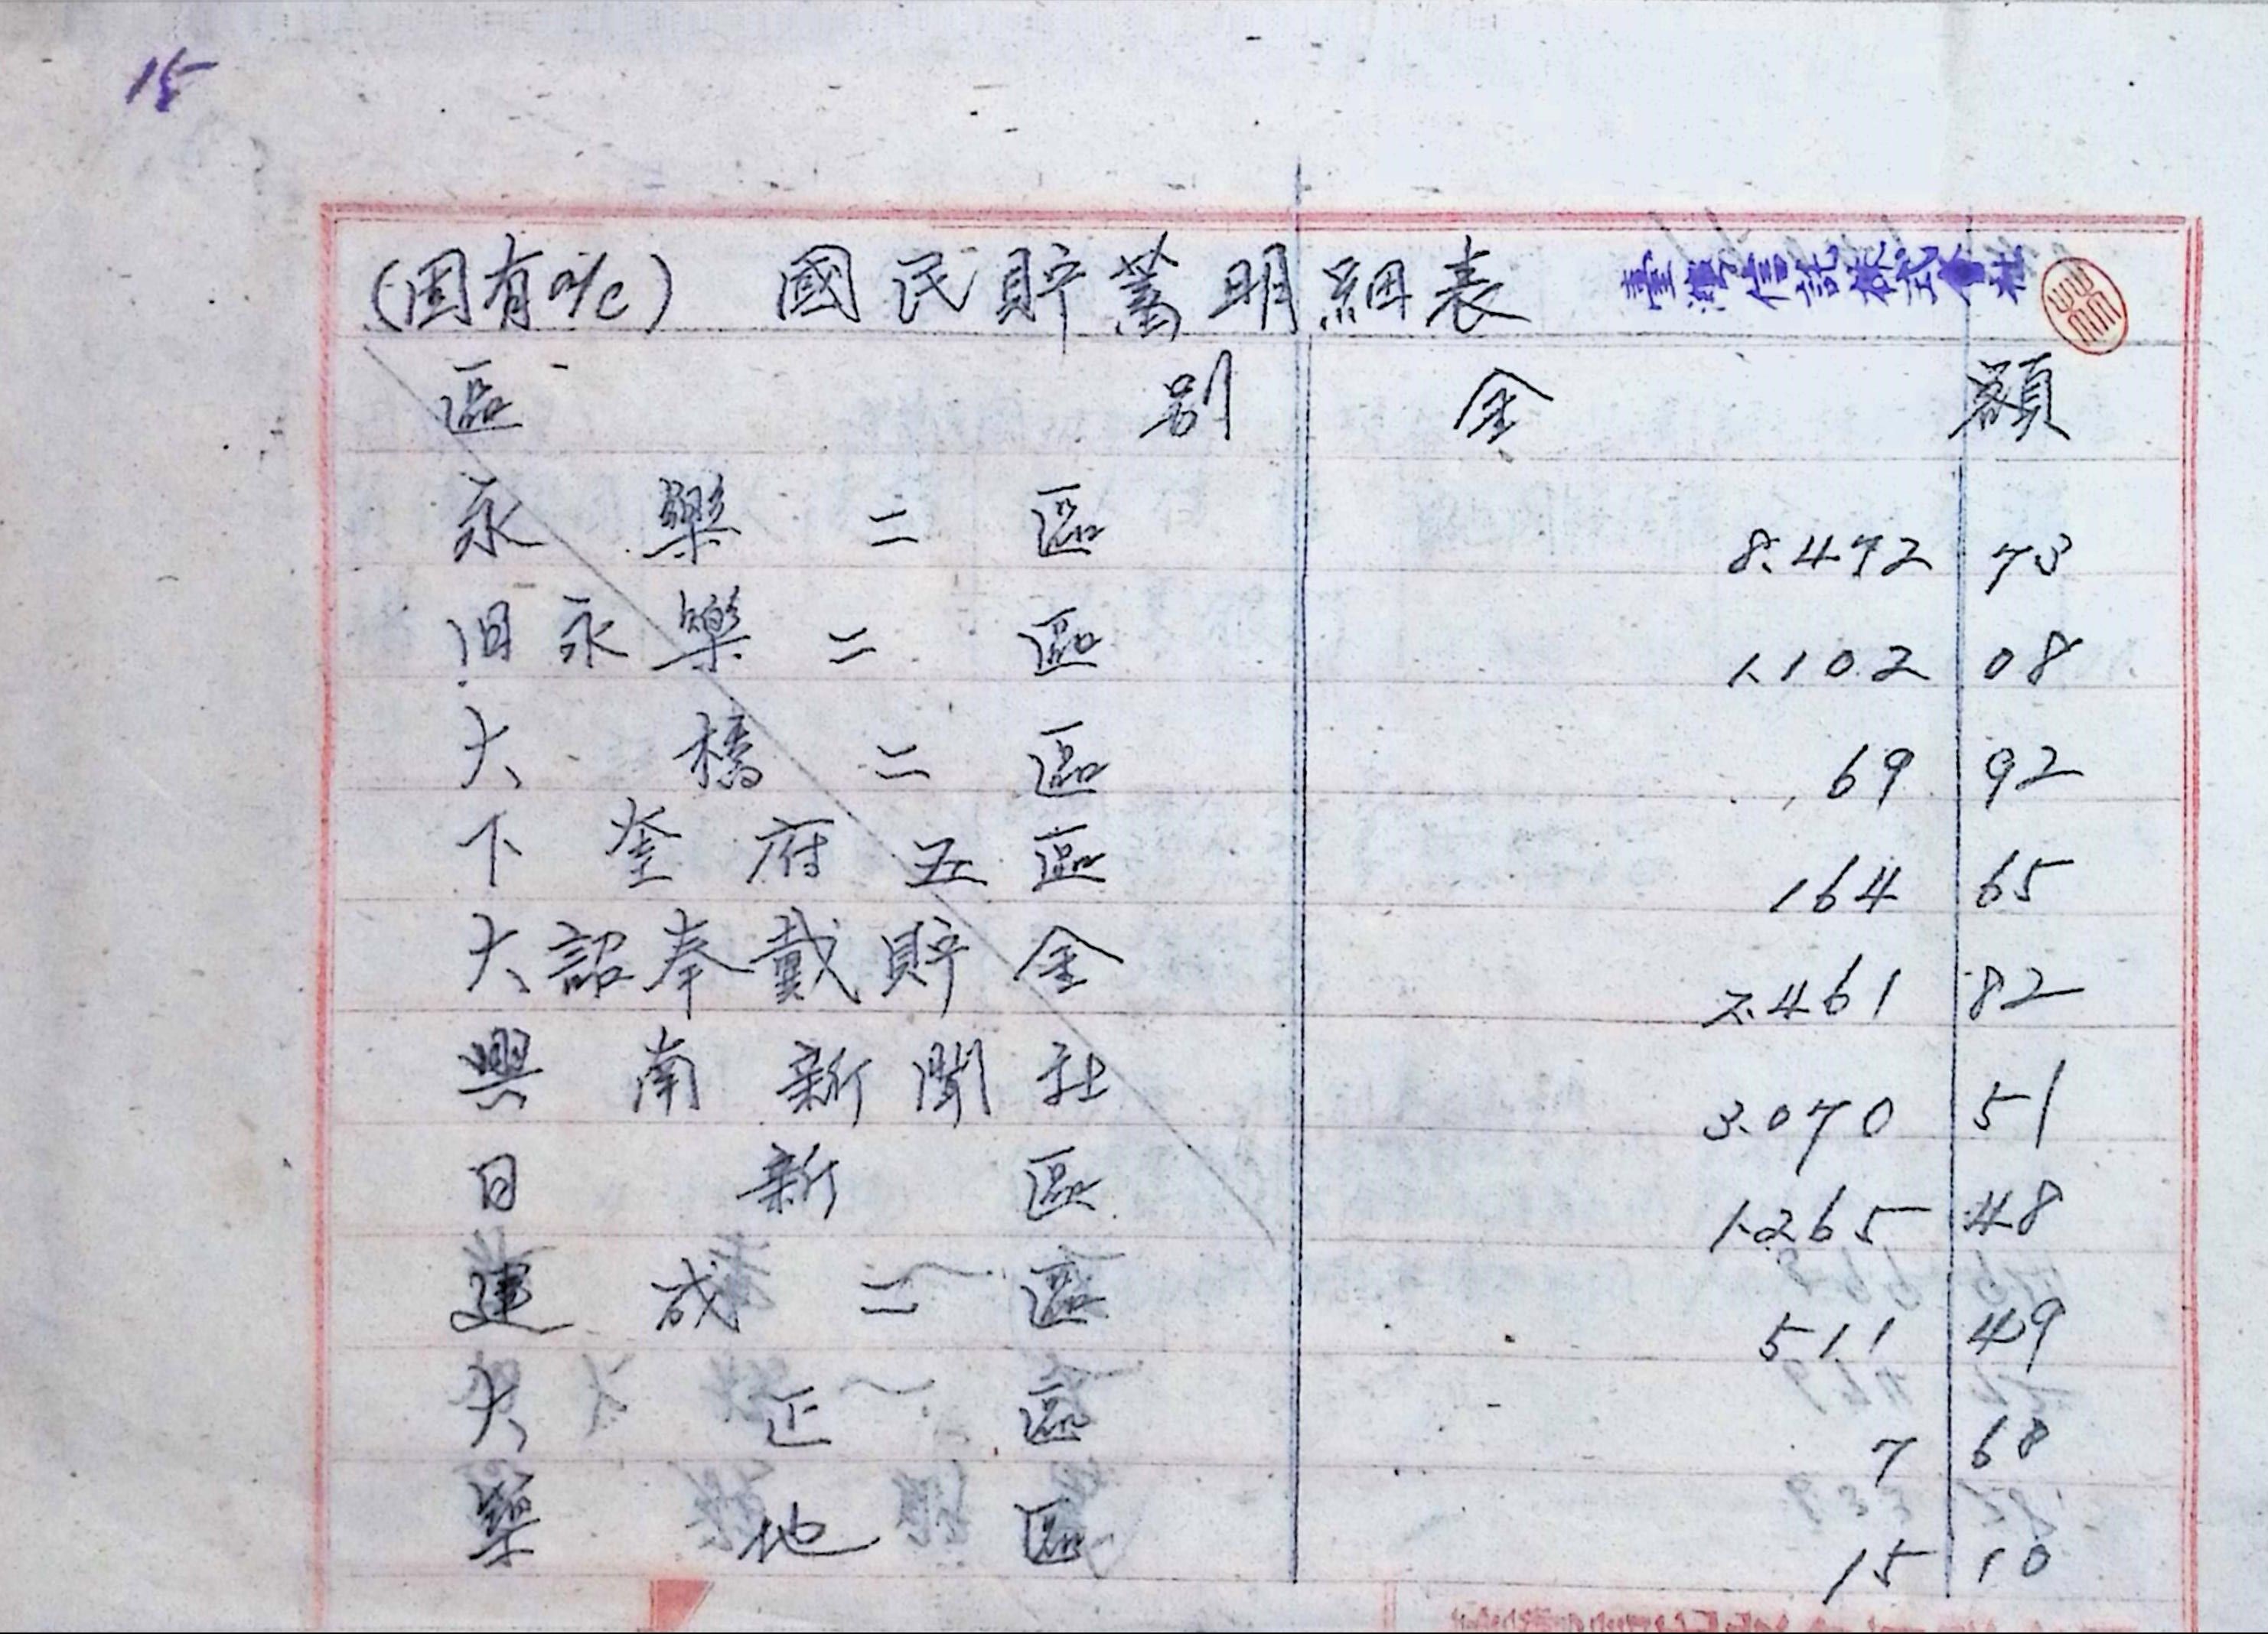 15
(固有a/c) 國民貯蓄明細表 臺灣信託株式會社
區別 金額
永樂二區 8.472 73
旧永樂二區 1.102 08
大橋二區 69 92
下奎府五區 164 65
大詔奉戴貯金 2.461 82
興南新聞社 3.070 51
日新區 1.265 48
建成二區 511 49
大正區 7 68
築地區 15 10